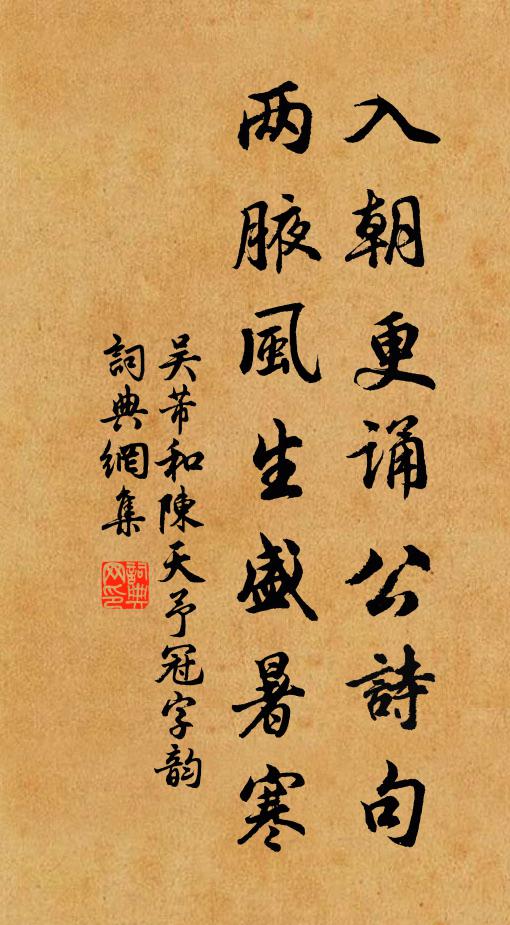 入朝更诵公詩句
两腋風生盛暑寒
吴芾和陳天予冠字韵
詞典網集
詞典网印